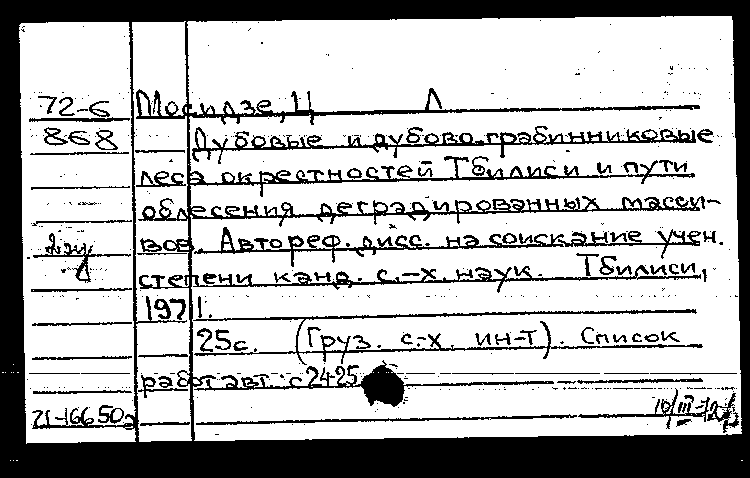 72-6 Мосидзе, Ц Л
868 Дубовые и дубово-грабинниковые
леса окрестностей Тбилиси и пути
облесения деградированных масси-
вов. Автореф. дисс. на соискание учен.
степени канд. с.-х. наук. Тбилиси,
1971.
25с. (Груз. с.-х. ин-т). Список
работ авт.: с 24-25
71-16650а 10/III-72